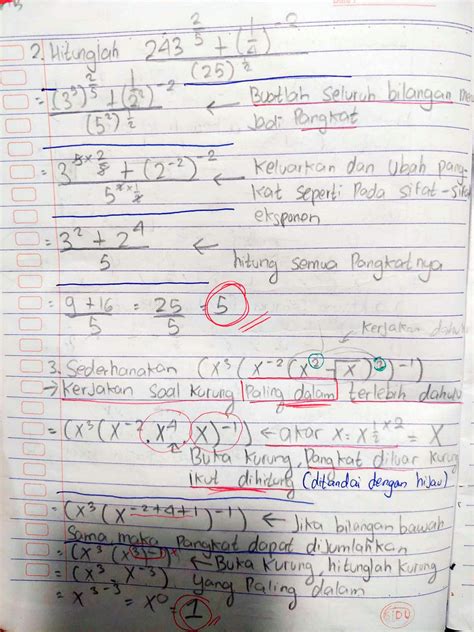 2. Hitunglah 243^(2/5) + (1/4)^-2 / (25)^(1/2)
= (3^5)^(2/5) + (1/2^2)^-2 / (5^2)^(1/2) ← Buatlah seluruh bilangan men
jadi Pangkat
= 3^(5×2/5) + (2^-2)^-2 / 5^(2×1/2) ← Keluarkan dan Ubah pang-
kat seperti Pada sifat-sifat
eksponen
= 3^2 + 2^4 / 5 ← hitung semua Pangkatnya
= 9+16 / 5 = 25 / 5 = 5
Kerjakan dahulu
3. Sederhanakan (x^3 (x^-2 (x^2 √x)^2)^-1)
→ Kerjakan soal kurung Paling dalam terlebih dahulu
= (x^3 (x^-2 . x^4 . x)^-1) ← akar x = x^(1/2 × 2) = x
Buka kurung, Pangkat diluar kurung
ikut dihitung (ditandai dengan hijau)
= (x^3 (x^(-2+4+1))^-1) ← Jika bilangan bawah
Sama, maka Pangkat dapat dijumlahkan
= (x^3 (x^3)^-1) ← Buka Kurung, hitunglah kurung
= (x^3 . x^-3) yang Paling dalam
= x^(3-3) = x^0 = 1